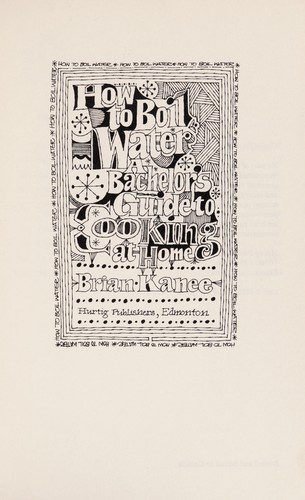 HOW TO BOIL WATER * HOW TO BOIL WATER * HOW TO BOIL WATER
How
to Boil
Water
Bachelor's
Guide to
Cooking
at Home
Brian Kanee
Hurtig Publishers, Edmonton
HOW TO BOIL WATER * HOW TO BOIL WATER * HOW TO BOIL WATER *